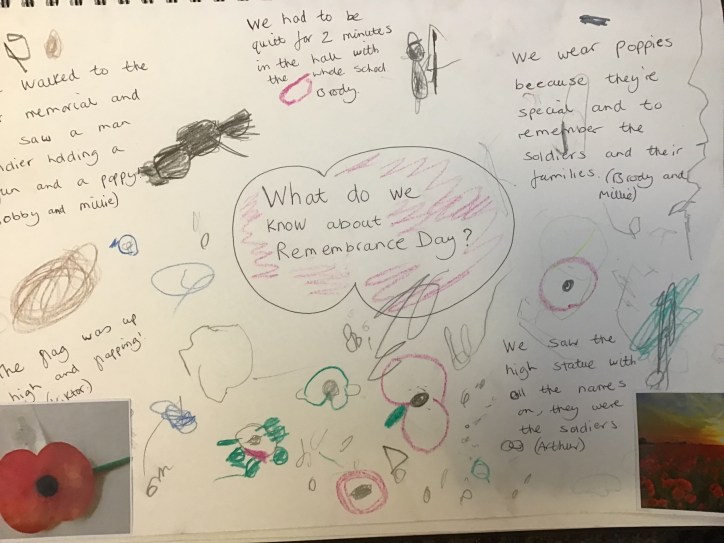 We had to be
quiet for 2 minutes
in the hall with
the whole school
Brody.
walked to the
memorial and
saw a man
holding a
and a poppy
and millie)
We wear poppies
because they're
special and to
remember the
soldiers and their
families. (Brody and
Millie)
What do we
know about
Remembrance Day?
The flag was up
high and flapping!
We saw the
high statue with
all the names
on, they were
the soldiers
(Arthur)